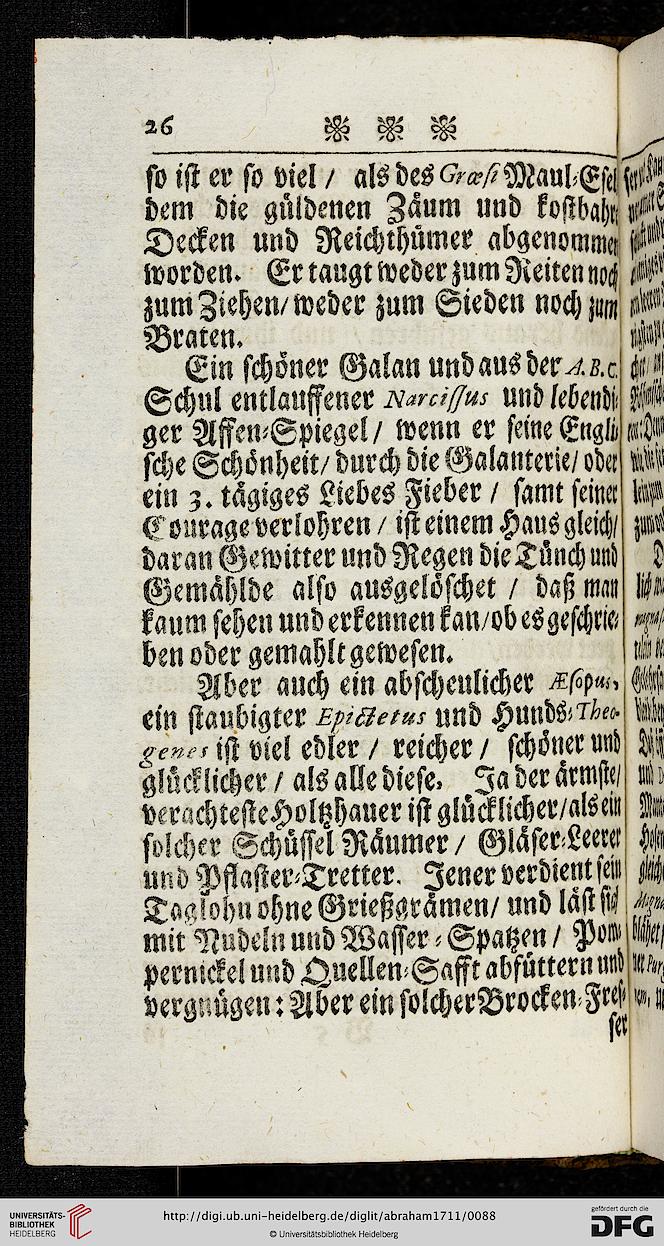 26
so ist er so viel / als des Græsi Maul-Esel
dem die güldenen Zäum und kostbahre
Decken und Reichthümer abgenommen
worden. Er taugt weder zum Reiten noch
zum Ziehen/ weder zum Sieden noch zum
Braten.
Ein schöner Galan und aus der A. B. C.
Schul entlauffener Narcissus und lebendi-
ger Affen-Spiegel / wenn er seine Engli-
sche Schönheit/ durch die Galanterie/ oder
ein 3. tägiges Liebes Fieber / samt seiner
Courage verlohren / ist einem Haus gleich/
daran Gewitter und Regen die Tünch und
Gemählde also ausgelöschet / daß man
kaum sehen und erkennen kan/ ob es geschrie-
ben oder gemahlt gewesen.
Aber auch ein abscheulicher Æsopus,
ein staubigter Epictetus und Hunds-Theo-
genes ist viel edler / reicher / schöner und
glücklicher / als alle diese. Ja der ärmste/
verachteste Holtzhauer ist glücklicher/ als ein
solcher Schüssel Räumer / Gläser-Leerer
und Pflaster-Tretter. Jener verdient sein
Taglohn ohne Grießgrämen/ und läst sich
mit Nudeln und Wasser-Spatzen / Pom-
pernickel und Quellen-Safft abfüttern und
vergnügen: Aber ein solcher Brocken-Fres-
ser
UNIVERSITÄTS-
BIBLIOTHEK
HEIDELBERG
http://digi.ub.uni-heidelberg.de/diglit/abraham1711/0088
© Universitätsbibliothek Heidelberg
gefördert durch die
DFG